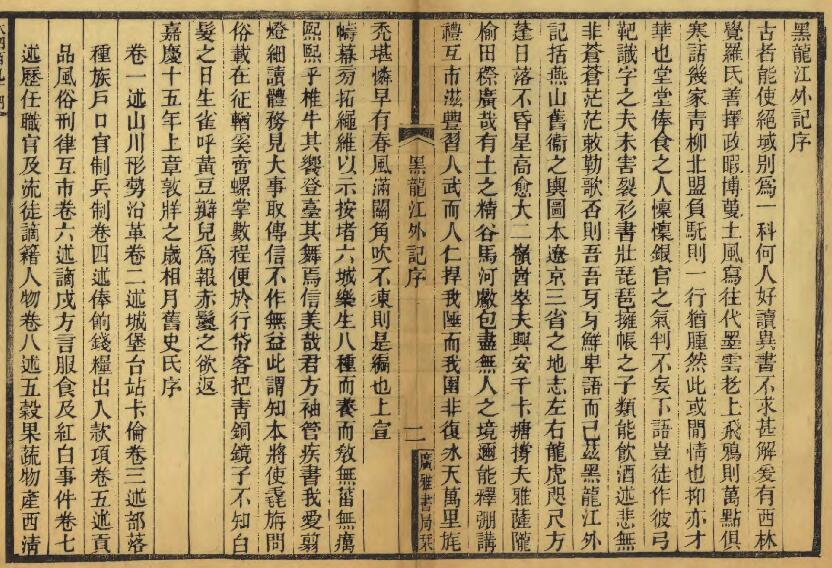 黑龍江外記序
古者能使絕域別爲一科何人好讀異書不求甚解爰有西林
覺羅氏善擇政暇博蒐土風寫往代墨雲老上飛鴉則萬點俱
寒話幾家青柳北盟負䭾則一行猶腫然此或閒情也抑亦才
華也堂堂俸食之人懍懍銀官之氣判不妄下語豈徒作彼弓
靶識字之夫未害裂衫書壯琵琶擁帳之子類能飲酒述悲無
非蒼蒼茫茫敕勒歌否則吾吾牙牙鮮卑語而已茲黑龍江外
記括燕山舊衞之輿圖本遼京三省之地志左右龍虎咫尺方
蓬日落不昏星高愈大二嶺峕崒夫興安千卡搪撐夫雅薩隴
偷田櫒廣哉有土之精谷馬河厰包盡無人之境邇能釋弸講
禮互市滋豐習人武而人仁捍我陲而我圉非復氷天萬里旄
黑龍江外記序
二
廣雅書局栞
禿堪憐早有春風滿關角吹不凍則是編也上宣
幬幕旁拓繩維以示按堵六城樂生八種而養而敎無菑無癘
熙熙乎椎牛其饗登臺其舞焉信美哉君方袖管疾書我愛翦
燈細讀體務見大事取傳信不作無益此謂知本將使毳旃問
俗載在征輶奚啻螺掌數程便於行帒客把靑銅鏡子不知白
髮之日生雀呼黃豆瓣兒爲報赤鬉之欲返
嘉慶十五年上章敦牂之歲相月舊史氏序
卷一述山川形勢沿革卷二述城堡台站卡倫卷三述部落
種族戶口官制兵制卷四述俸餉錢糧出入款項卷五述貢
品風俗刑律互市卷六述謫戍方言服食及紅白事件卷七
述歷任職官及流徒謫籍人物卷八述五穀果蔬物產西淸